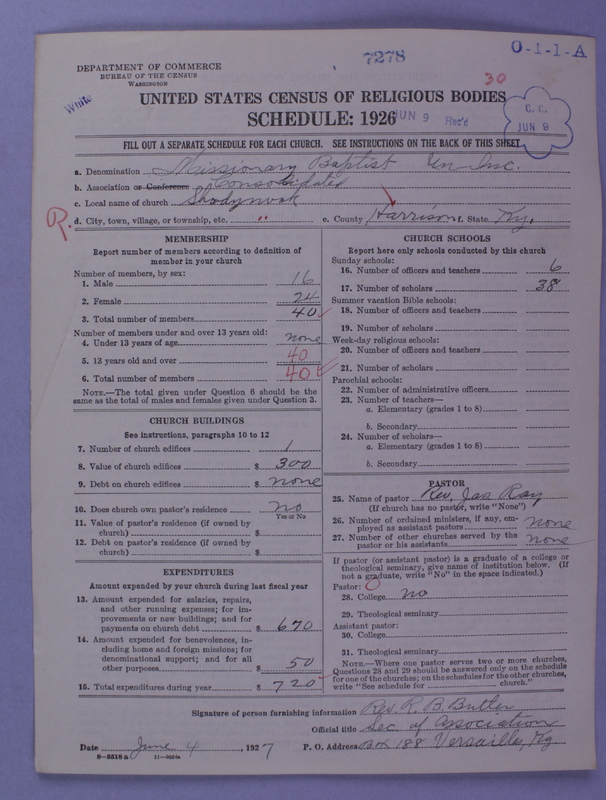 7278
O-1-1-A
DEPARTMENT OF COMMERCE
BUREAU OF THE CENSUS
WASHINGTON
30
White
UNITED STATES CENSUS OF RELIGIOUS BODIES
C. C.
JUN 9
SCHEDULE: 1926
JUN 9 Rec'd
FILL OUT A SEPARATE SCHEDULE FOR EACH CHURCH. SEE INSTRUCTIONS ON THE BACK OF THIS SHEET
a. Denomination Missionary Baptist Un Inc.
b. Association or Conference Consolidated
c. Local name of church Shadynook
R. d. City, town, village, or township, etc. " e. County Harrison f. State Ky.
MEMBERSHIP
Report number of members according to definition of
member in your church
Number of members, by sex:
1. Male 16
2. Female 24
3. Total number of members 40
Number of members under and over 13 years old:
4. Under 13 years of age none
5. 13 years old and over 40
6. Total number of members 40
NOTE.—The total given under Question 6 should be the
same as the total of males and females given under Question 3.
CHURCH BUILDINGS
See instructions, paragraphs 10 to 12
7. Number of church edifices 1
8. Value of church edifices $ 300
9. Debt on church edifices $ none
10. Does church own pastor's residence no
Yes or No
11. Value of pastor's residence (if owned by
church) $
12. Debt on pastor's residence (if owned by
church) $
EXPENDITURES
Amount expended by your church during last fiscal year
13. Amount expended for salaries, repairs,
and other running expenses; for im-
provements or new buildings; and for
payments on church debt $ 670
14. Amount expended for benevolences, in-
cluding home and foreign missions; for
denominational support; and for all
other purposes $ 50
15. Total expenditures during year $ 720
CHURCH SCHOOLS
Report here only schools conducted by this church
Sunday schools:
16. Number of officers and teachers 6
17. Number of scholars 38
Summer vacation Bible schools:
18. Number of officers and teachers
19. Number of scholars
Week-day religious schools:
20. Number of officers and teachers
21. Number of scholars
Parochial schools:
22. Number of administrative officers
23. Number of teachers—
a. Elementary (grades 1 to 8)
b. Secondary
24. Number of scholars—
a. Elementary (grades 1 to 8)
b. Secondary
PASTOR
25. Name of pastor Rev. Jas Ray
(If church has no pastor, write "None")
26. Number of ordained ministers, if any, em-
ployed as assistant pastors none
27. Number of other churches served by the
pastor or his assistants none
If pastor (or assistant pastor) is a graduate of a college or
theological seminary, give name of institution below. (If
not a graduate, write "No" in the space indicated.)
Pastor:
28. College no
29. Theological seminary
Assistant pastor:
30. College
31. Theological seminary
NOTE.—Where one pastor serves two or more churches,
Questions 28 and 29 should be answered only on the schedule
for one of the churches; on the schedules for the other churches,
write "See schedule for church."
Signature of person furnishing information Rev. R. B. Butler
Official title Sec. of Association
Date June 4, 1927 P. O. Address Box 188 Versailles, Ky
8—5518a 11—9024a